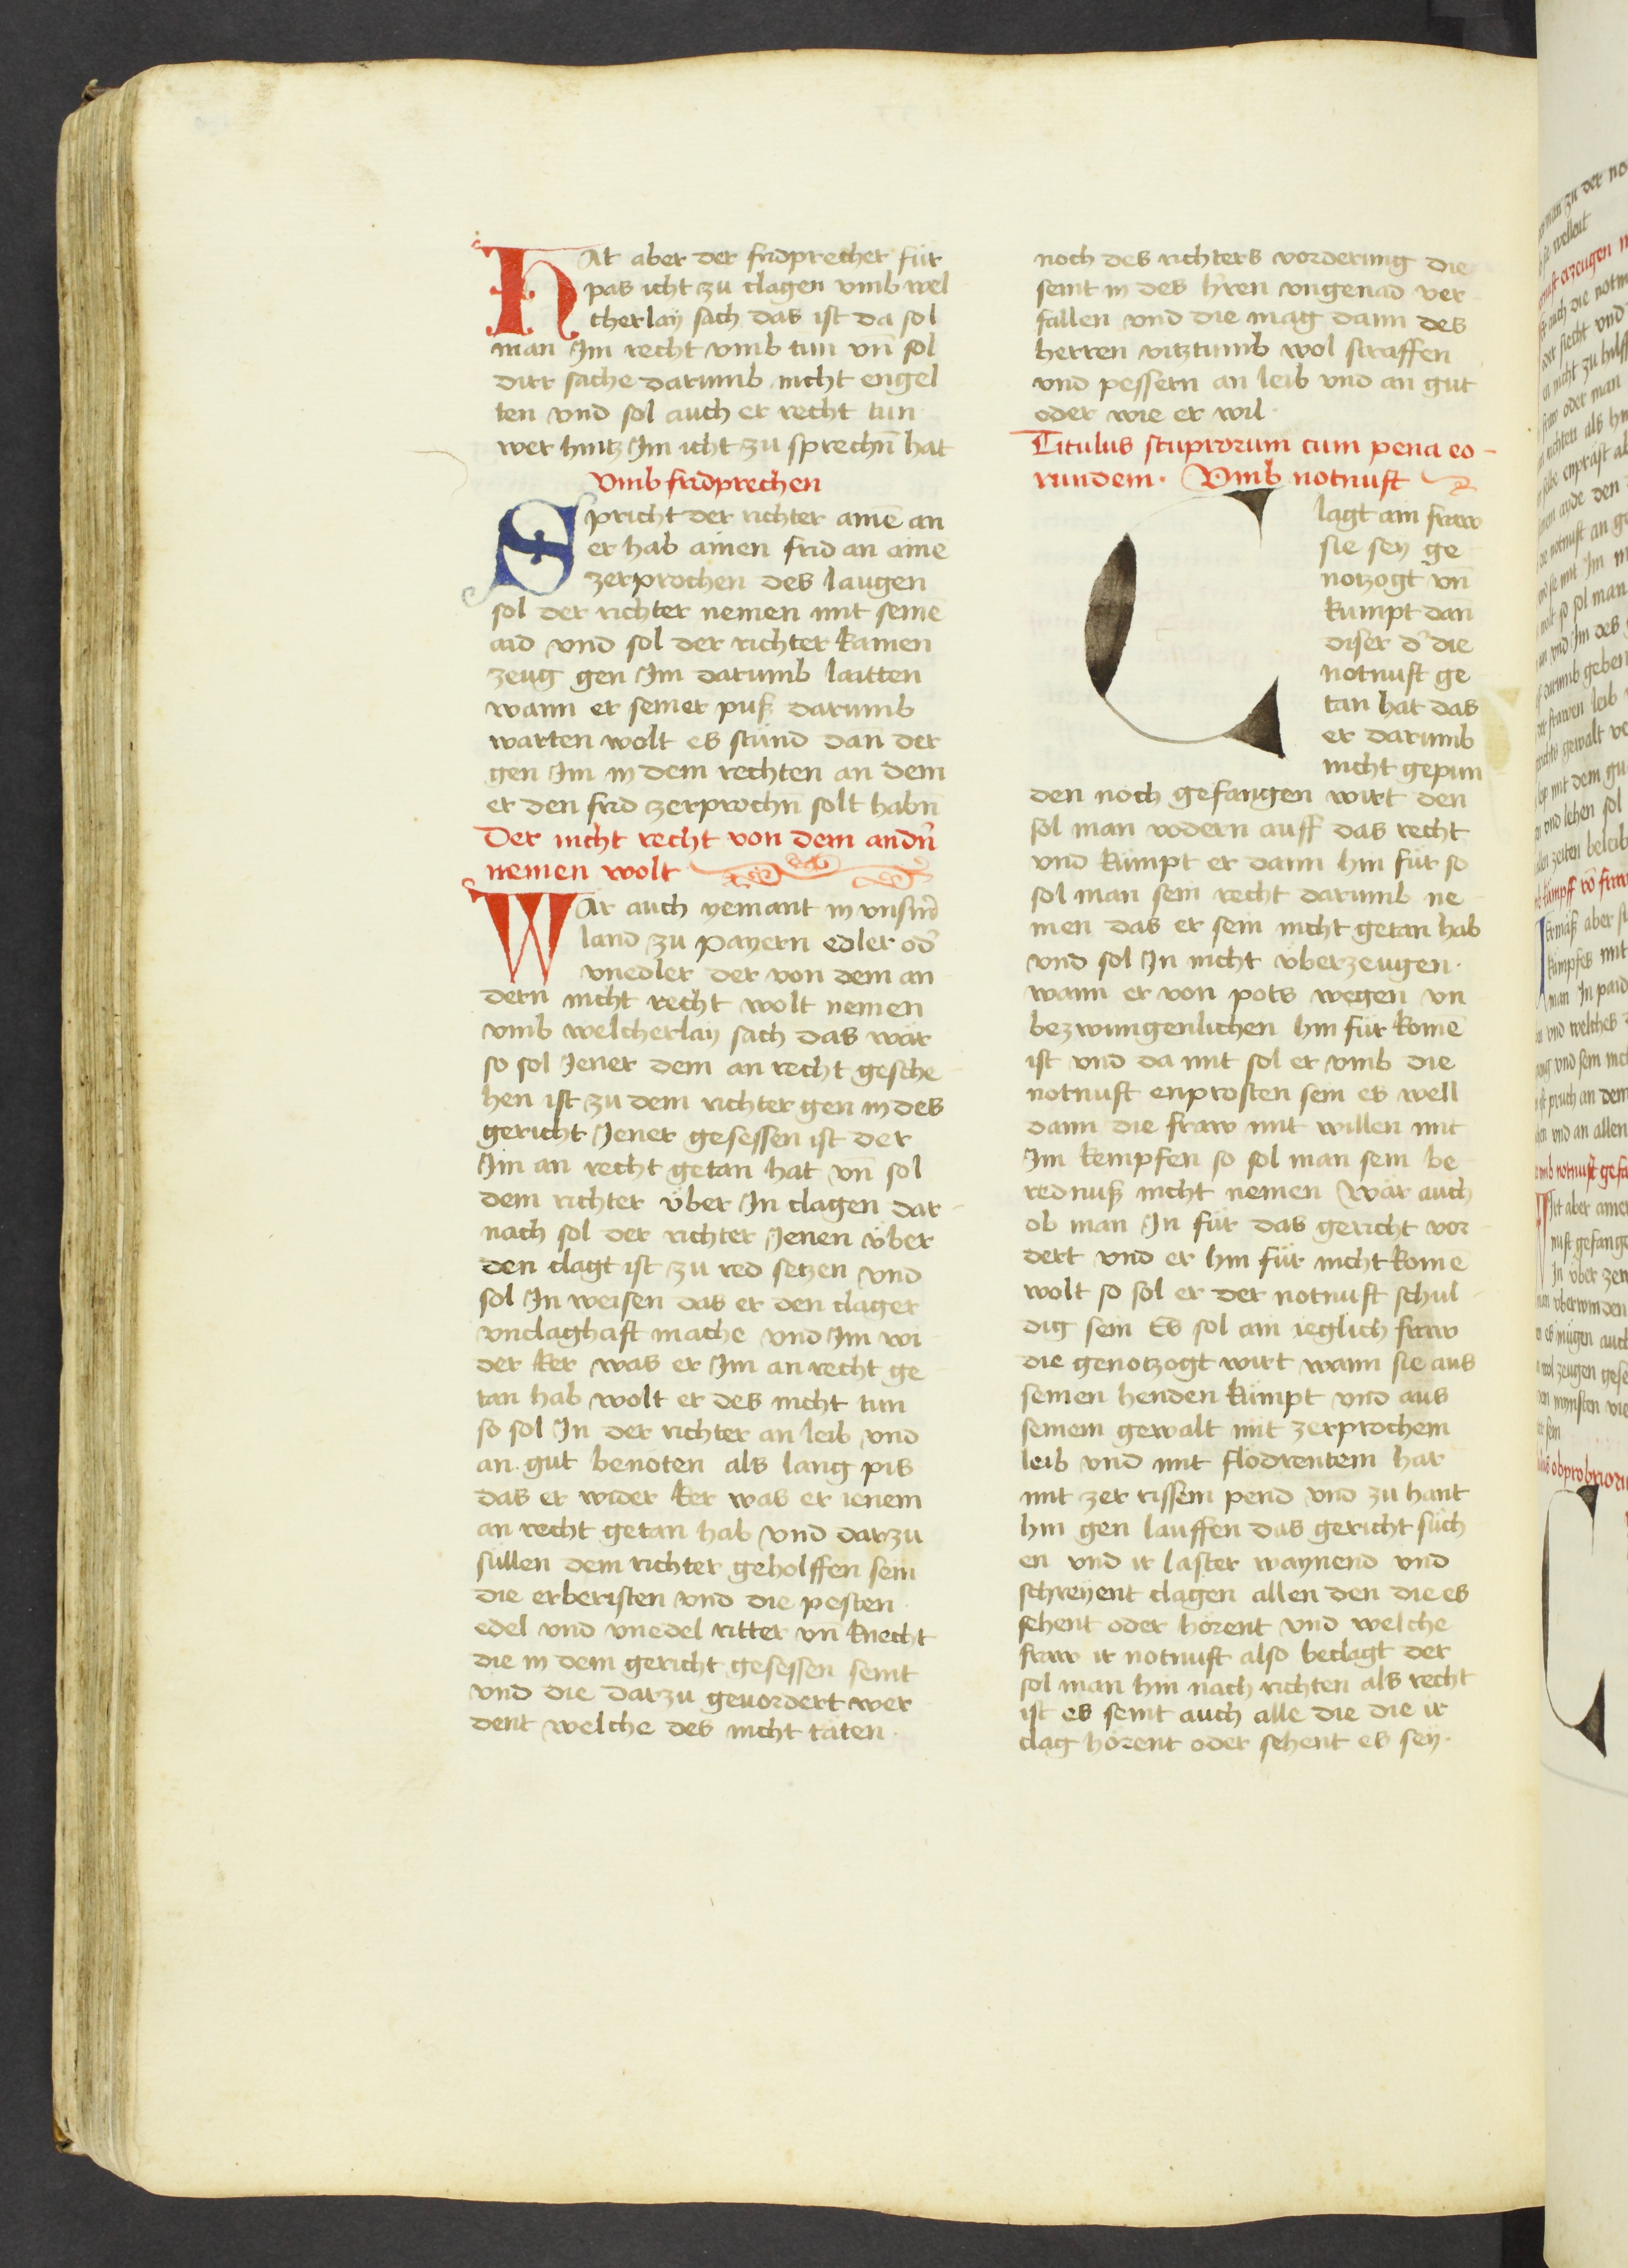 HAt aber der fridprecher für
pas icht zu clagen vmb wel
cherlaÿ sach das ist da sol
man Jm recht vmb tun vn̄ sol
dirr sache darumb nicht engel
ten vnd sol auch er recht tun
wer hintz Jm icht zu sprechn̄ hat
Vmb fridprechen
Spricht der richter ainē an
er hab ainen frid an ainē
zerprochen des laugen
sol der richter nemen mit seinē
aid vnd sol der richter kainen
zeug gen Jm darumb laitten
wann er seiner puß darumb
warten wolt es stünd dan̄ der
gen Jm in dem rechten an dem
er den frid zerprochn̄ solt habn̄
Der nicht recht von dem andn̄
nemen wolt
WAr auch yemant in vnsm̄
land zu payern edler od̄
vnedler der von dem an
dern nicht recht wolt nemen
vmb welcherlaÿ sach das wär
so sol Jener dem an recht gesche
hen ist zu dem richter gen in des
gericht Jener gesessen ist der
Jm an recht getan hat vn̄ sol
dem richter über Jn clagen dar
nach sol der richter Jenen über
den clagt ist zu red setzen vnd
sol Jn weisen das er den clager
vnclaghaft mache vnd Jm wi
der ker was er Jm an recht ge
tan hab wolt er des nicht tun
so sol Jn der richter an leib vnd
an gut benöten als lang pis
das er wider ker was er ienem
an recht getan hab vnd darzu
süllen dem richter geholffen sein
die erberisten vnd die pesten
edel vnd vnedel ritter vn̄ knecht
die in dem gericht gesessen seint
vnd die darzu geuordert wer
dent welche des nicht täten
noch des richters vorderung die
seint in des hren̄ vngenad ver
fallen vnd die mag dann des
herren vitztumb wol straffen
vnd pessern an leib vnd an gut
oder wie er wil
Titulus stuprorum cum pena eo-
rundem. Vmb notnuft
Clagt ain fraw
sie sey ge
notzogt vn̄
kumpt dan̄
diser d̄ die
notnuft ge
tan hat das
er darumb
nicht gepun
den noch gefangen wirt den
sol man vodern auff das recht
vnd kümpt er dann hin für so
sol man sein recht darumb ne
men das er sein nicht getan hab
vnd sol Jn nicht überzeugen
wann er von pots wegen vn
bezwungenlichen hin für komē
ist vnd da mit sol er vmb die
notnuft enprosten sein es well
dann die fraw mit willen mit
Jm kempfen so sol man sein be
rednuß nicht nemen Wär auch
ob man Jn für das gericht vor
dert vnd er hin für nicht komē
wolt so sol er der notnuft schul
dig sein Es sol ain ieglich fraw
die genotzogt wirt wann sie aus
seinen henden kümpt vnd aus
seinem gewalt mit zerprochem
leib vnd mit flodrentem har
mit zer rissem pend vnd zu hant
hin gen lauffen das gericht such
en vnd ir laster waynend vnd
schreyent clagen allen den die es
sehent oder hörent vnd welche
fraw ir notnuft also beclagt der
sol man hin nach richten als recht
ist es seint auch alle die die ir
clag hörent oder sehent es sey